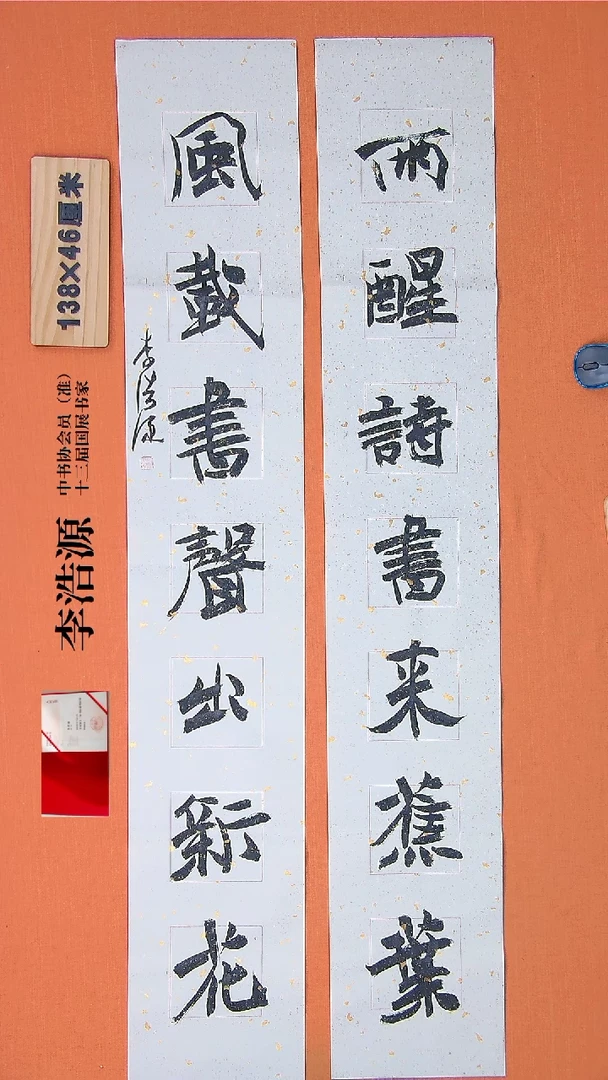 雨醒詩書来蕉葉
風載書聲出新花
李浩源
138×46厘米
中书协会员（准）
十三届国展书家
李浩源